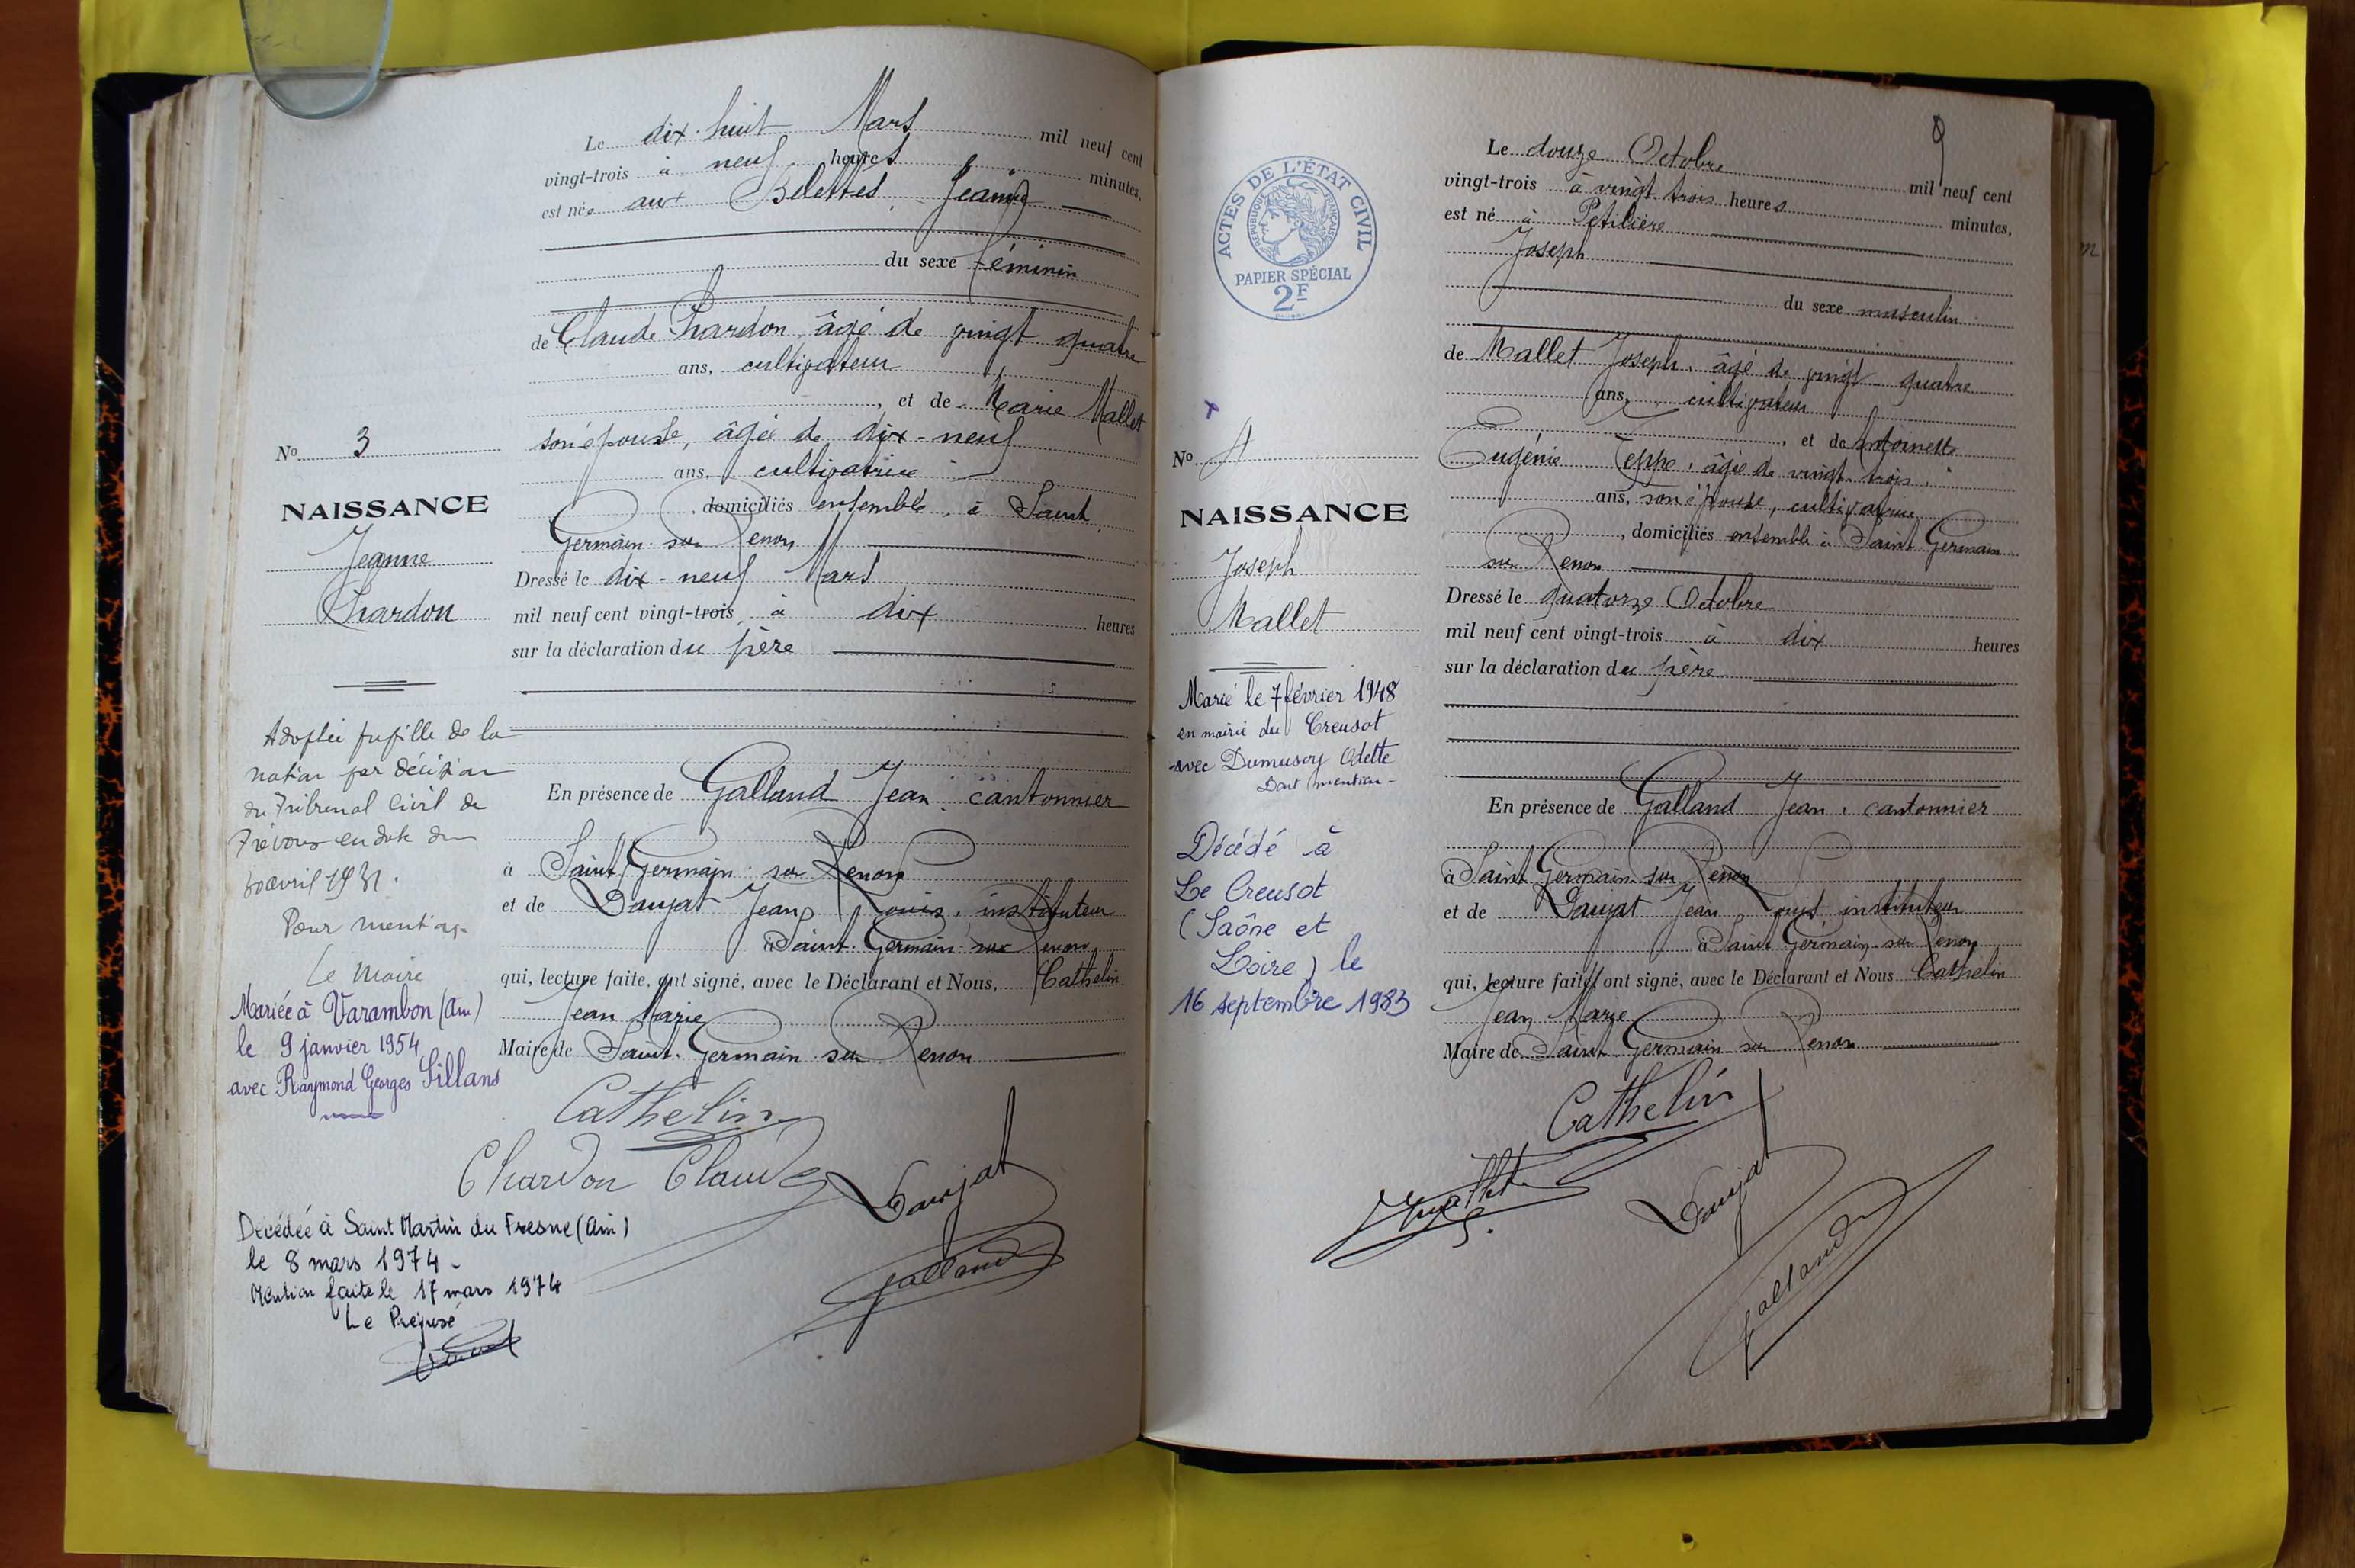 Le dix-huit Mars mil neuf cent
vingt-trois à neuf heures minutes,
est née aux Belettes, Jeanne
du sexe féminin
de Claude Chardon, âgé de vingt quatre
ans, cultivateur
, et de Marie Mallet
son épouse, âgée de dix-neuf
ans, cultivatrice
, domiciliés ensemble, à Saint
Germain sur Renon
Dressé le dix-neuf Mars
mil neuf cent vingt-trois, à dix heures
sur la déclaration du père
En présence de Galland Jean, cantonnier
à Saint Germain sur Renon
et de Daujat Jean Louis, instituteur
à Saint-Germain-sur Renon,
qui, lecture faite, ont signé, avec le Déclarant et Nous, Cathelin
Jean Marie
Maire de Saint-Germain sur Renon
Cathelin
Chardon Claude
Daujat
Galland
No 3
NAISSANCE
Jeanne
Chardon
Adoptée pupille de la
nation par décision
du Tribunal Civil de
Trévoux en date du
avril 1931.
Pour mention
Le Maire
Mariée à Varambon (Ain)
le 9 janvier 1954
avec Raymond Georges Sillans
Décédée à Saint Martin du Fresne (Ain)
le 8 mars 1974 -
Mention faite le 17 mars 1974
Le Préposé
9
ACTES DE L'ÉTAT CIVIL
RÉPUBLIQUE FRANÇAISE
PAPIER SPÉCIAL
2F
Le douze Octobre mil neuf cent
vingt-trois à vingt trois heures minutes,
est né à Petilière
Joseph
du sexe masculin
de Mallet Joseph, âgé de vingt-quatre
ans, cultivateur
, et de Antoinette
Eugénie Teppe, âgée de vingt-trois,
ans, son épouse, cultivatrice
, domiciliés ensemble à Saint Germain
sur Renon
Dressé le quatorze Octobre
mil neuf cent vingt-trois à dix heures
sur la déclaration du père
En présence de Galland Jean, cantonnier
à Saint Germain sur Renon
et de Daujat Jean Louis, instituteur
à Saint Germain-sur Renon,
qui, lecture faite, ont signé, avec le Déclarant et Nous Cathelin
Jean Marie
Maire de Saint-Germain-sur Renon
Cathelin
Mallet
J.
Daujat
Galland
No 4
NAISSANCE
Joseph
Mallet
Marié le 7 février 1948
en mairie du Creusot
avec Dumusoy Odette
Dont mention -
Décédé à
Le Creusot
(Saône et
Loire) le
16 septembre 1983